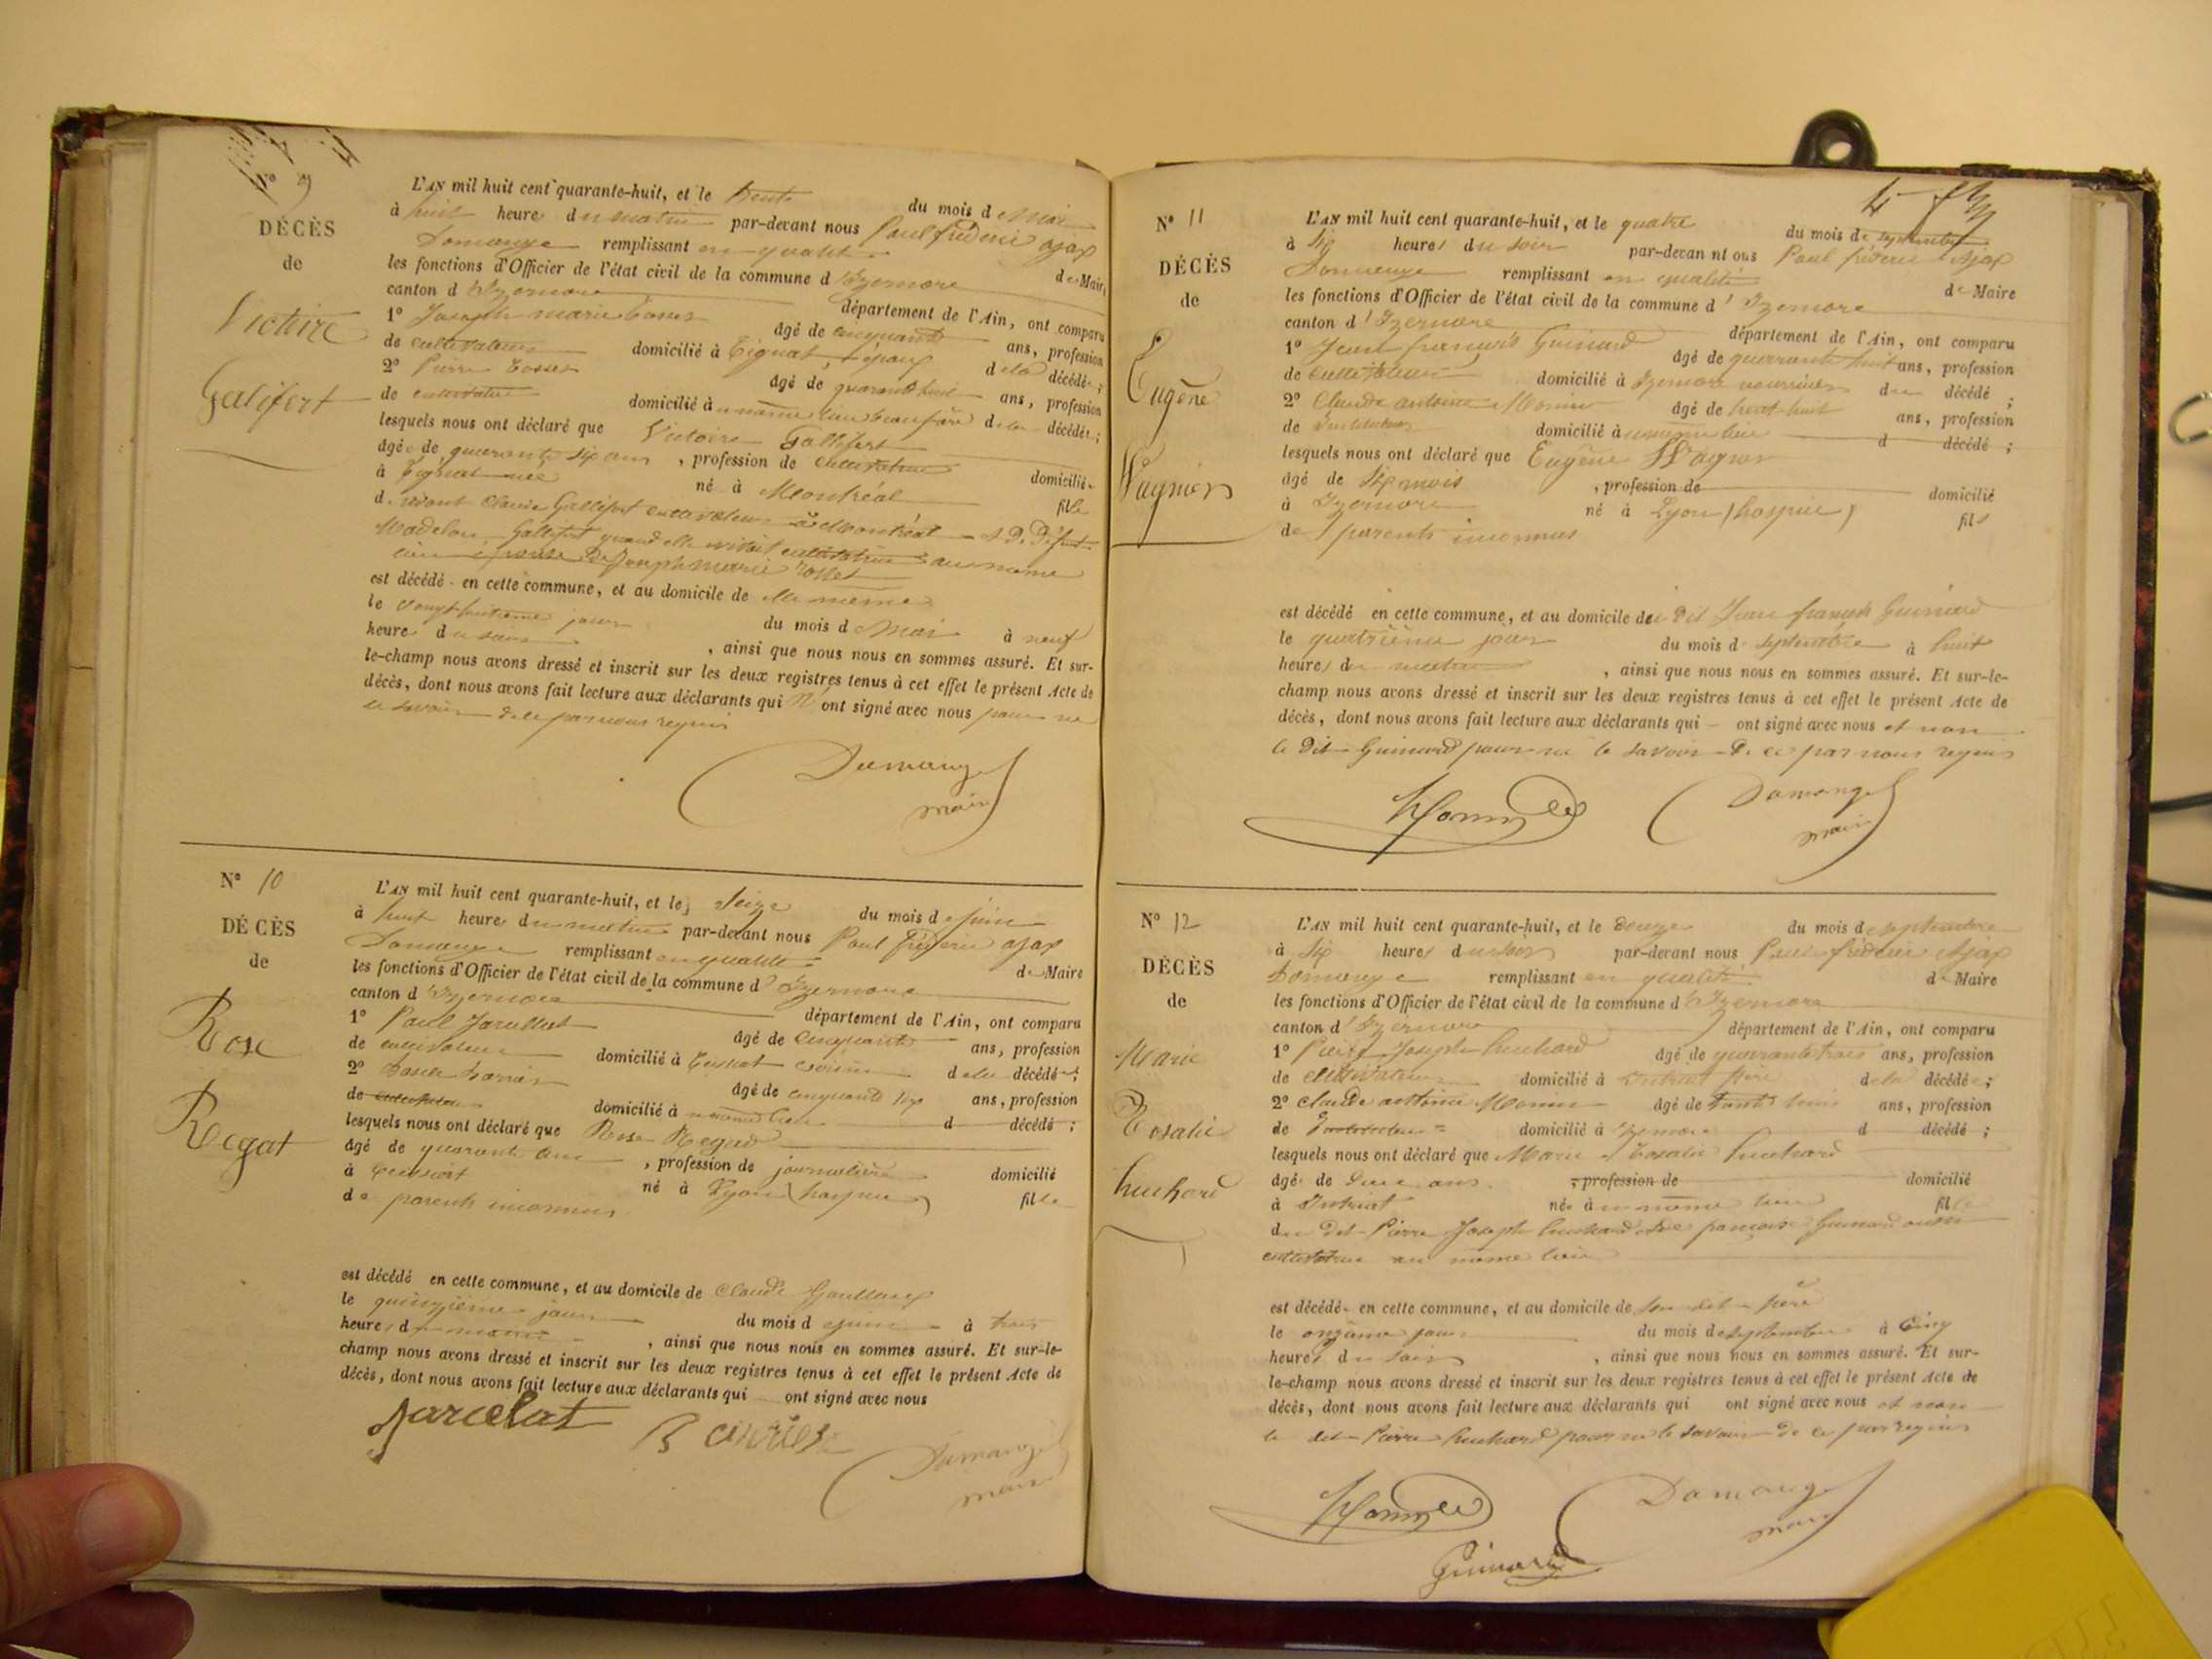 N° 9
DÉCÈS
de
Victoire
Galifert
L'AN mil huit cent quarante-huit, et le trente du mois de Mai
à huit heures du matin par-devant nous Paul frédéric ajax
Domange remplissant en qualité de Maire
les fonctions d'Officier de l'état civil de la commune d'Izernore
canton d'Izernore département de l'Ain, ont comparu
1° Joseph marie âgé de cinquante ans, profession
de cultivateur domicilié à Tignat, époux de la décédée;
2° Pierre âgé de quarante huit ans, profession
de cultivateur domicilié à même lieu beau frère de la décédée;
lesquels nous ont déclaré que Victoire Gallifert
âgée de quarante six ans, profession de cultivatrice domiciliée
à Tignat née né à Montréal fille
de vivant Claude Gallifert cultivateur à Montréal et de Défunte
Madelon Gallifert quand elle vivait cultivatrice au même
lieu épouse de Joseph marie
est décédé en cette commune, et au domicile de elle même
le vingt-huitième jour du mois de Mai à neuf
heures du soir, ainsi que nous nous en sommes assuré. Et sur-
le-champ nous avons dressé et inscrit sur les deux registres tenus à cet effet le présent Acte de
décès, dont nous avons fait lecture aux déclarants qui n'ont signé avec nous pour ne
le savoir de ce par nous requis
Domange
maire
N° 10
DÉCÈS
de
Rose
Regat
L'AN mil huit cent quarante-huit, et le seize du mois de juin
à huit heures du matin par-devant nous Paul frédéric ajax
Domange remplissant en qualité de Maire
les fonctions d'Officier de l'état civil de la commune d'Izernore
canton d'Izernore département de l'Ain, ont comparu
1° Paul âgé de cinquante ans, profession
de cultivateur domicilié à Ceissiat voisin de la décédée;
2° âgé de cinquante six ans, profession
de cultivateur domicilié à même lieu d décédé;
lesquels nous ont déclaré que Rose Regad
âgé de quarante ans, profession de journalière domicilié
à Ceissiat né à Lyon (hospice) fille
de parents inconnus
est décédé en cette commune, et au domicile de Claude
le quinzième jour du mois de juin à trois
heures du matin, ainsi que nous nous en sommes assuré. Et sur-le-
champ nous avons dressé et inscrit sur les deux registres tenus à cet effet le présent Acte de
décès, dont nous avons fait lecture aux déclarants qui ont signé avec nous
Domange
maire
N° 11
DÉCÈS
de
Eugène
Wagner
L'AN mil huit cent quarante-huit, et le quatre du mois de septembre
à six heures du soir par-devan nt ous Paul frédéric Ajax
Domange remplissant en qualité de Maire
les fonctions d'Officier de l'état civil de la commune d'Izernore
canton d'Izernore département de l'Ain, ont comparu
1° Jean françois Guinard âgé de quarante huit ans, profession
de cultivateur domicilié à Izernore nourricier du décédé;
2° Claude antoine Monin âgé de trente huit ans, profession
de Instituteur domicilié à même lieu d décédé;
lesquels nous ont déclaré que Eugène Wagner
âgé de six mois, profession de domicilié
à Izernore né à Lyon (hospice) fils
de parents inconnus
est décédé en cette commune, et au domicile de dit Jean françois Guinard
le quatrième jour du mois de septembre à huit
heures du matin, ainsi que nous nous en sommes assuré. Et sur-le-
champ nous avons dressé et inscrit sur les deux registres tenus à cet effet le présent Acte de
décès, dont nous avons fait lecture aux déclarants qui ont signé avec nous et non
le dit Guinard pour ne le savoir de ce par nous requis
Monin
Domange
maire
N° 12
DÉCÈS
de
Marie
Rosalie
Huchard
L'AN mil huit cent quarante-huit, et le douze du mois de septembre
à six heures du soir par-devant nous Paul frédéric Ajax
Domange remplissant en qualité de Maire
les fonctions d'Officier de l'état civil de la commune d'Izernore
canton d'Izernore département de l'Ain, ont comparu
1° Pierre Joseph huchard âgé de quarante trois ans, profession
de cultivateur domicilié à Intriat père de la décédée;
2° Claude antoine Monin âgé de trente huit ans, profession
de Instituteur domicilié à Izernore d décédé;
lesquels nous ont déclaré que Marie Rosalie huchard
âgé de deux ans, profession de domicilié
à Intriat née à même lieu fille
du dit Pierre Joseph huchard et de françoise Guinard aussi
cultivatrice au même lieu
est décédée en cette commune, et au domicile de son dit père
le onzième jour du mois de septembre à cinq
heures du soir, ainsi que nous nous en sommes assuré. Et sur-
le-champ nous avons dressé et inscrit sur les deux registres tenus à cet effet le présent Acte de
décès, dont nous avons fait lecture aux déclarants qui ont signé avec nous et non
le dit Pierre huchard pour ne le savoir de ce par requis
Monin
Domange
maire
Guinard